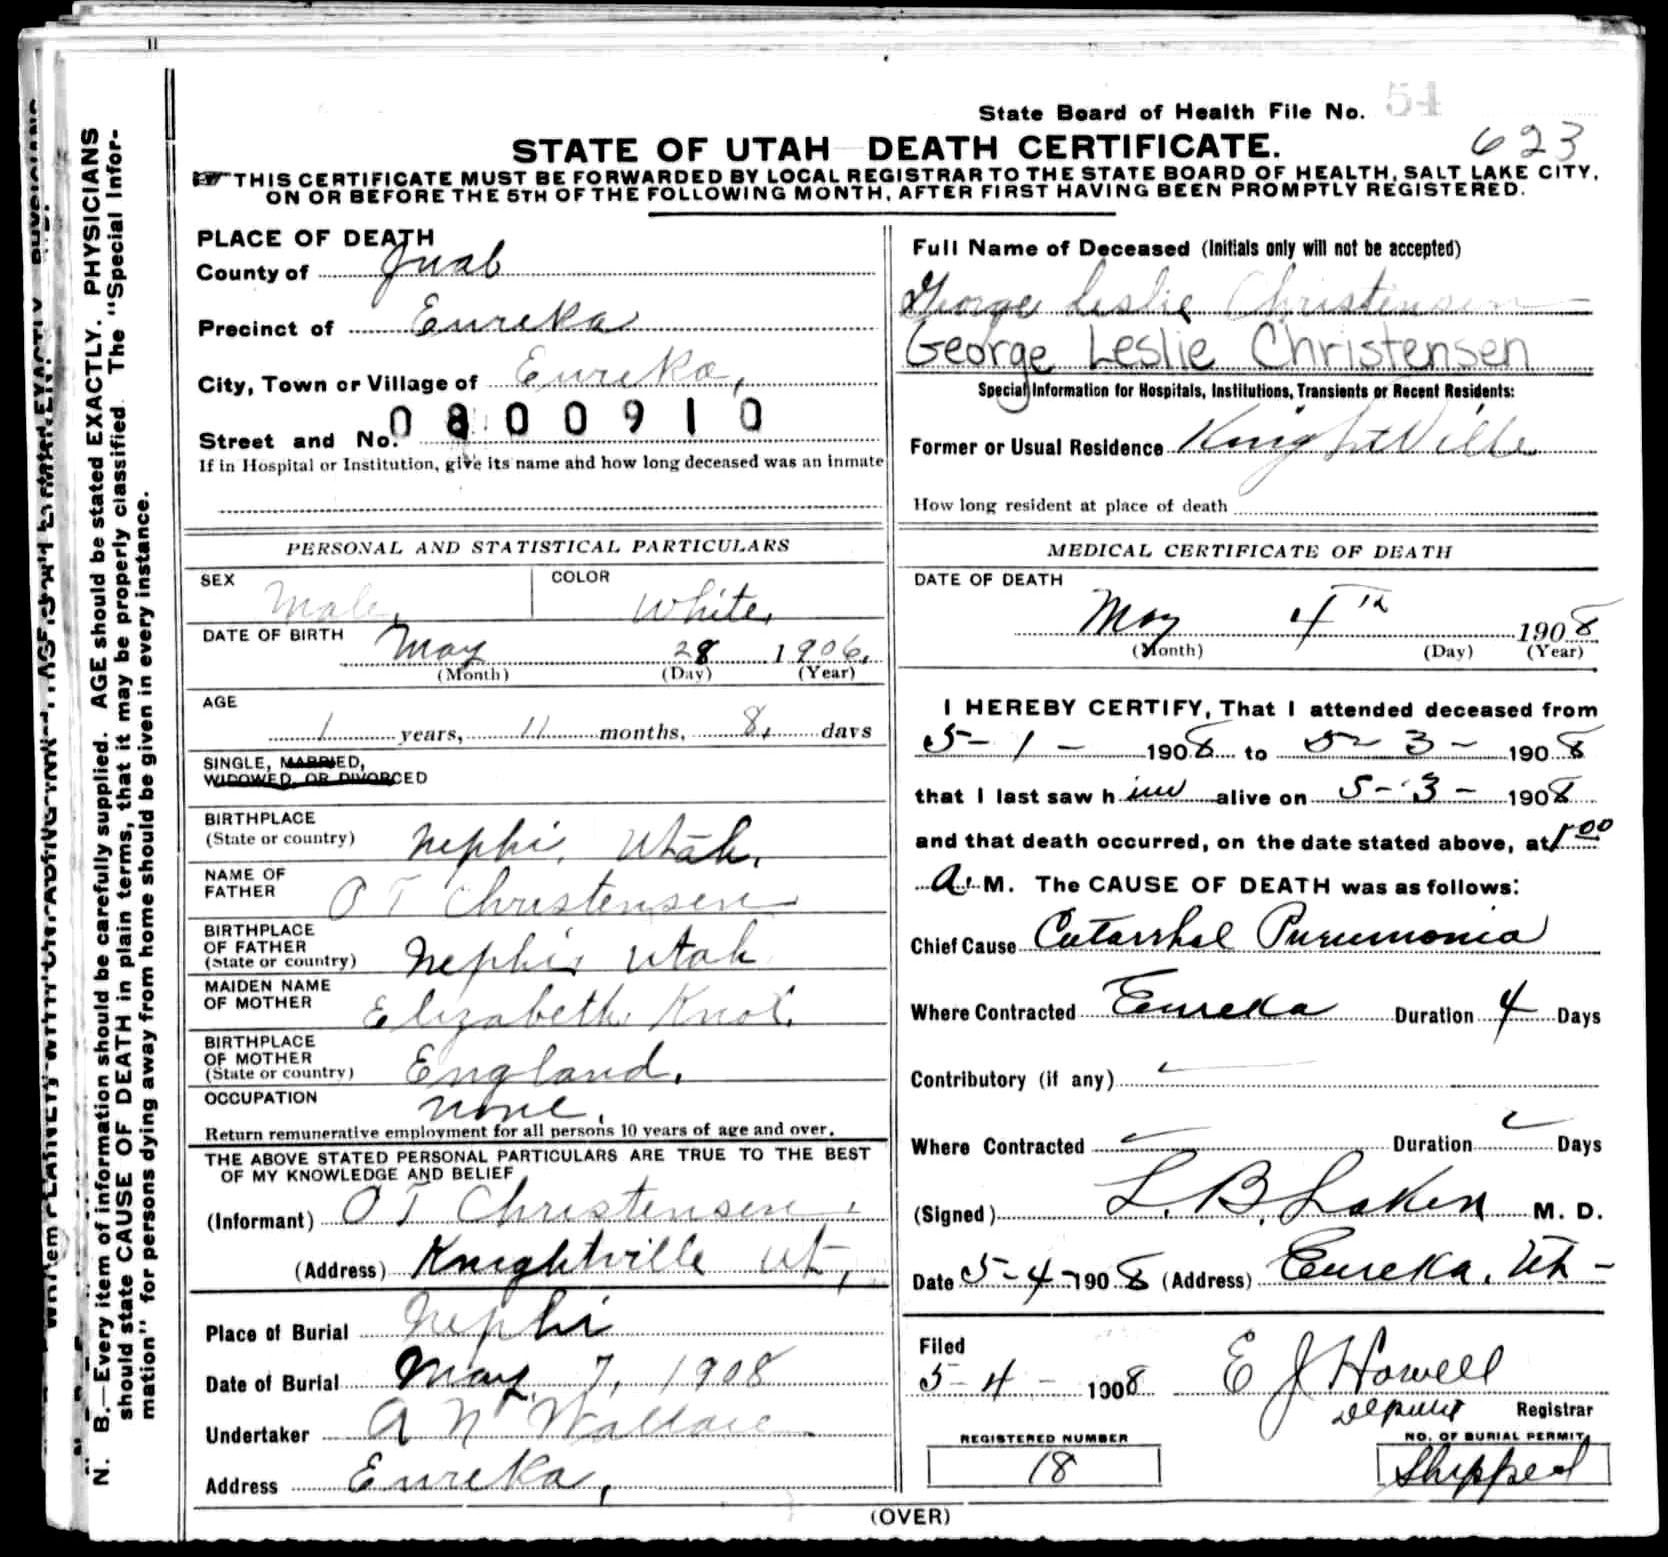 State Board of Health File No. 54
623
STATE OF UTAH DEATH CERTIFICATE.
THIS CERTIFICATE MUST BE FORWARDED BY LOCAL REGISTRAR TO THE STATE BOARD OF HEALTH, SALT LAKE CITY,
ON OR BEFORE THE 5TH OF THE FOLLOWING MONTH, AFTER FIRST HAVING BEEN PROMPTLY REGISTERED.
PLACE OF DEATH
County of Juab
Precinct of Eureka
City, Town or Village of Eureka,
0800910
Street and No.
If in Hospital or Institution, give its name and how long deceased was an inmate
PERSONAL AND STATISTICAL PARTICULARS
SEX Male, COLOR White,
DATE OF BIRTH May 28 1906.
(Month) (Day) (Year)
AGE
1 years, 11 months, 8, days
SINGLE, MARRIED,
WIDOWED, OR DIVORCED
BIRTHPLACE
(State or country) Nephi, Utah,
NAME OF
FATHER O T Christensen
BIRTHPLACE
OF FATHER
(State or country) Nephi, Utah
MAIDEN NAME
OF MOTHER Elizabeth
BIRTHPLACE
OF MOTHER
(State or country) England.
OCCUPATION none,
Return remunerative employment for all persons 10 years of age and over.
THE ABOVE STATED PERSONAL PARTICULARS ARE TRUE TO THE BEST
OF MY KNOWLEDGE AND BELIEF
(Informant) O T Christensen
(Address) Knightville Ut,
Place of Burial Nephi
Date of Burial May 7, 1908
Undertaker A N Wallace
Address Eureka,
Full Name of Deceased (Initials only will not be accepted)
George Leslie Christensen
George Leslie Christensen
Special Information for Hospitals, Institutions, Transients or Recent Residents:
Former or Usual Residence KnightVille
How long resident at place of death
MEDICAL CERTIFICATE OF DEATH
DATE OF DEATH
May 4th 1908
(Month) (Day) (Year)
I HEREBY CERTIFY, That I attended deceased from
5-1- 1908 to 5-3- 1908
that I last saw him alive on 5-3- 1908
and that death occurred, on the date stated above, at 1.00
A.M. The CAUSE OF DEATH was as follows:
Chief Cause Catarrhal Pneumonia
Where Contracted Eureka Duration 4 Days
Contributory (if any)
Where Contracted Duration Days
(Signed) L. B. Laker M. D.
Date 5-4-1908 (Address) Eureka, Ut-
Filed
5-4- 1908 E J Howell
Deputy Registrar
REGISTERED NUMBER
18
NO. OF BURIAL PERMIT
Shipped
(OVER)
N. B.—Every item of information should be carefully supplied. AGE should be stated EXACTLY. PHYSICIANS
should state CAUSE OF DEATH in plain terms, that it may be properly classified. The "Special Infor-
mation" for persons dying away from home should be given in every instance.